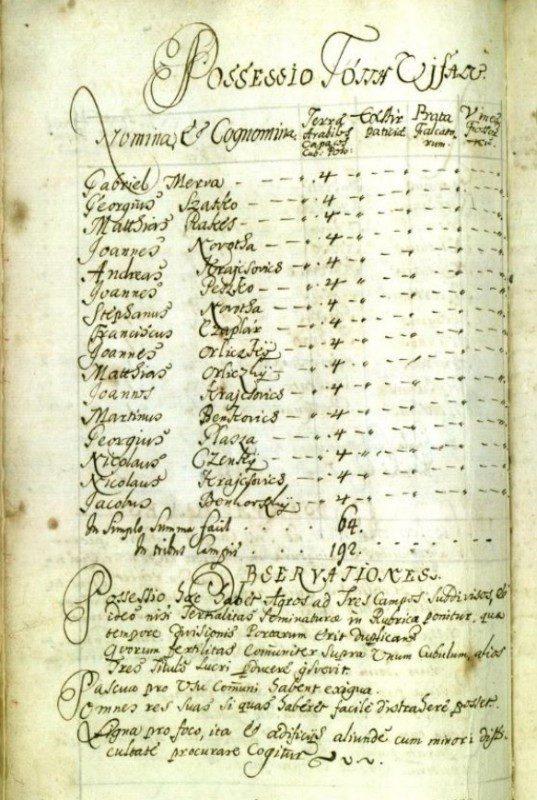 Possessio Tótth Ujfalu.
Nomina, & Cognomina.
Terræ Arabiles Capaces Cub: Poson:
Exstirpatitiæ
Prata Falcatorum
Vineæ
Gabriel Merva - - 4 - -
Georgius Szatko - - 4 - -
Matthias Rakes - - 4 - -
Joannes Novotha - - 4 - -
Andreas Krajcsovics - - 4 - -
Joannes Peszko - - 4 - -
Stephanus Novotha - - 4 - -
Franciscus Czaplár - - 4 - -
Joannes Orliczkÿ - - 4 - -
Matthias Orliczkÿ - - 4 - -
Joannes Krajcsovics - - 4 - -
Martinus Benkovics - - 4 - -
Georgius Plasza - - 4 - -
Nicolaus Czenkÿ - - 4 - -
Nicolaus Krajcsovics - - 4 - -
Jacobus Benkovszkÿ - - 4 - -
In Simplo Summa facit . . 64.
In tribus Campis . . . . 192.
OBSERVATIONES.
Possessio hæc habet Agros ad Tres Campos Subdivisos, et
ideo nisi Tertialitas Seminaturæ in Rubrica ponitur, quæ
tempore divisionis Portarum erit duplicanda
quorum fertilitas Com̄uniter supra Unum Cubulum, alios
Tres Titulo Lucri producere
Pascua pro Usu Com̄uni habent exigua.
Omnes res suas si quas haberet facile distrahere posset.
Ligna pro foco, ita & ædificiis aliunde cum minori diffi-
cultate procurare Cogitur